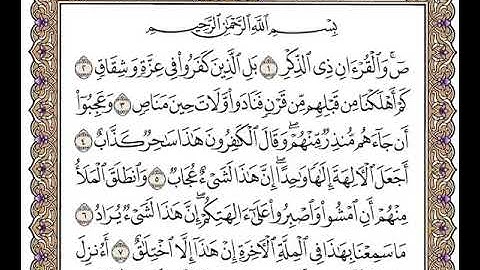 بِسْمِ اللَّهِ الرَّحْمَٰنِ الرَّحِيمِ
صٓ ۚ وَالْقُرْءَانِ ذِي الذِّكْرِ ١ بَلِ الَّذِينَ كَفَرُوا۟ فِي عِزَّةٍ وَشِقَاقٍ ٢
كَمْ أَهْلَكْنَا مِن قَبْلِهِم مِّن قَرْنٍ فَنَادَوا۟ وَّلَاتَ حِينَ مَنَاصٍ ٣ وَعَجِبُوٓا۟
أَن جَآءَهُم مُّنذِرٌ مِّنْهُمْ ۖ وَقَالَ الْكَٰفِرُونَ هَٰذَا سَٰحِرٌ كَذَّابٌ ٤
أَجَعَلَ الْءَالِهَةَ إِلَٰهًا وَٰحِدًا ۖ إِنَّ هَٰذَا لَشَىْءٌ عُجَابٌ ٥ وَانطَلَقَ الْمَلَأُ
مِنْهُمْ أَنِ امْشُوا۟ وَاصْبِرُوا۟ عَلَىٰٓ ءَالِهَتِكُمْ ۖ إِنَّ هَٰذَا لَشَىْءٌ يُرَادُ ٦
مَا سَمِعْنَا بِهَٰذَا فِي الْمِلَّةِ الْءَاخِرَةِ إِنْ هَٰذَآ إِلَّا اخْتِلَٰقٌ ٧ أَءُنزِلَ